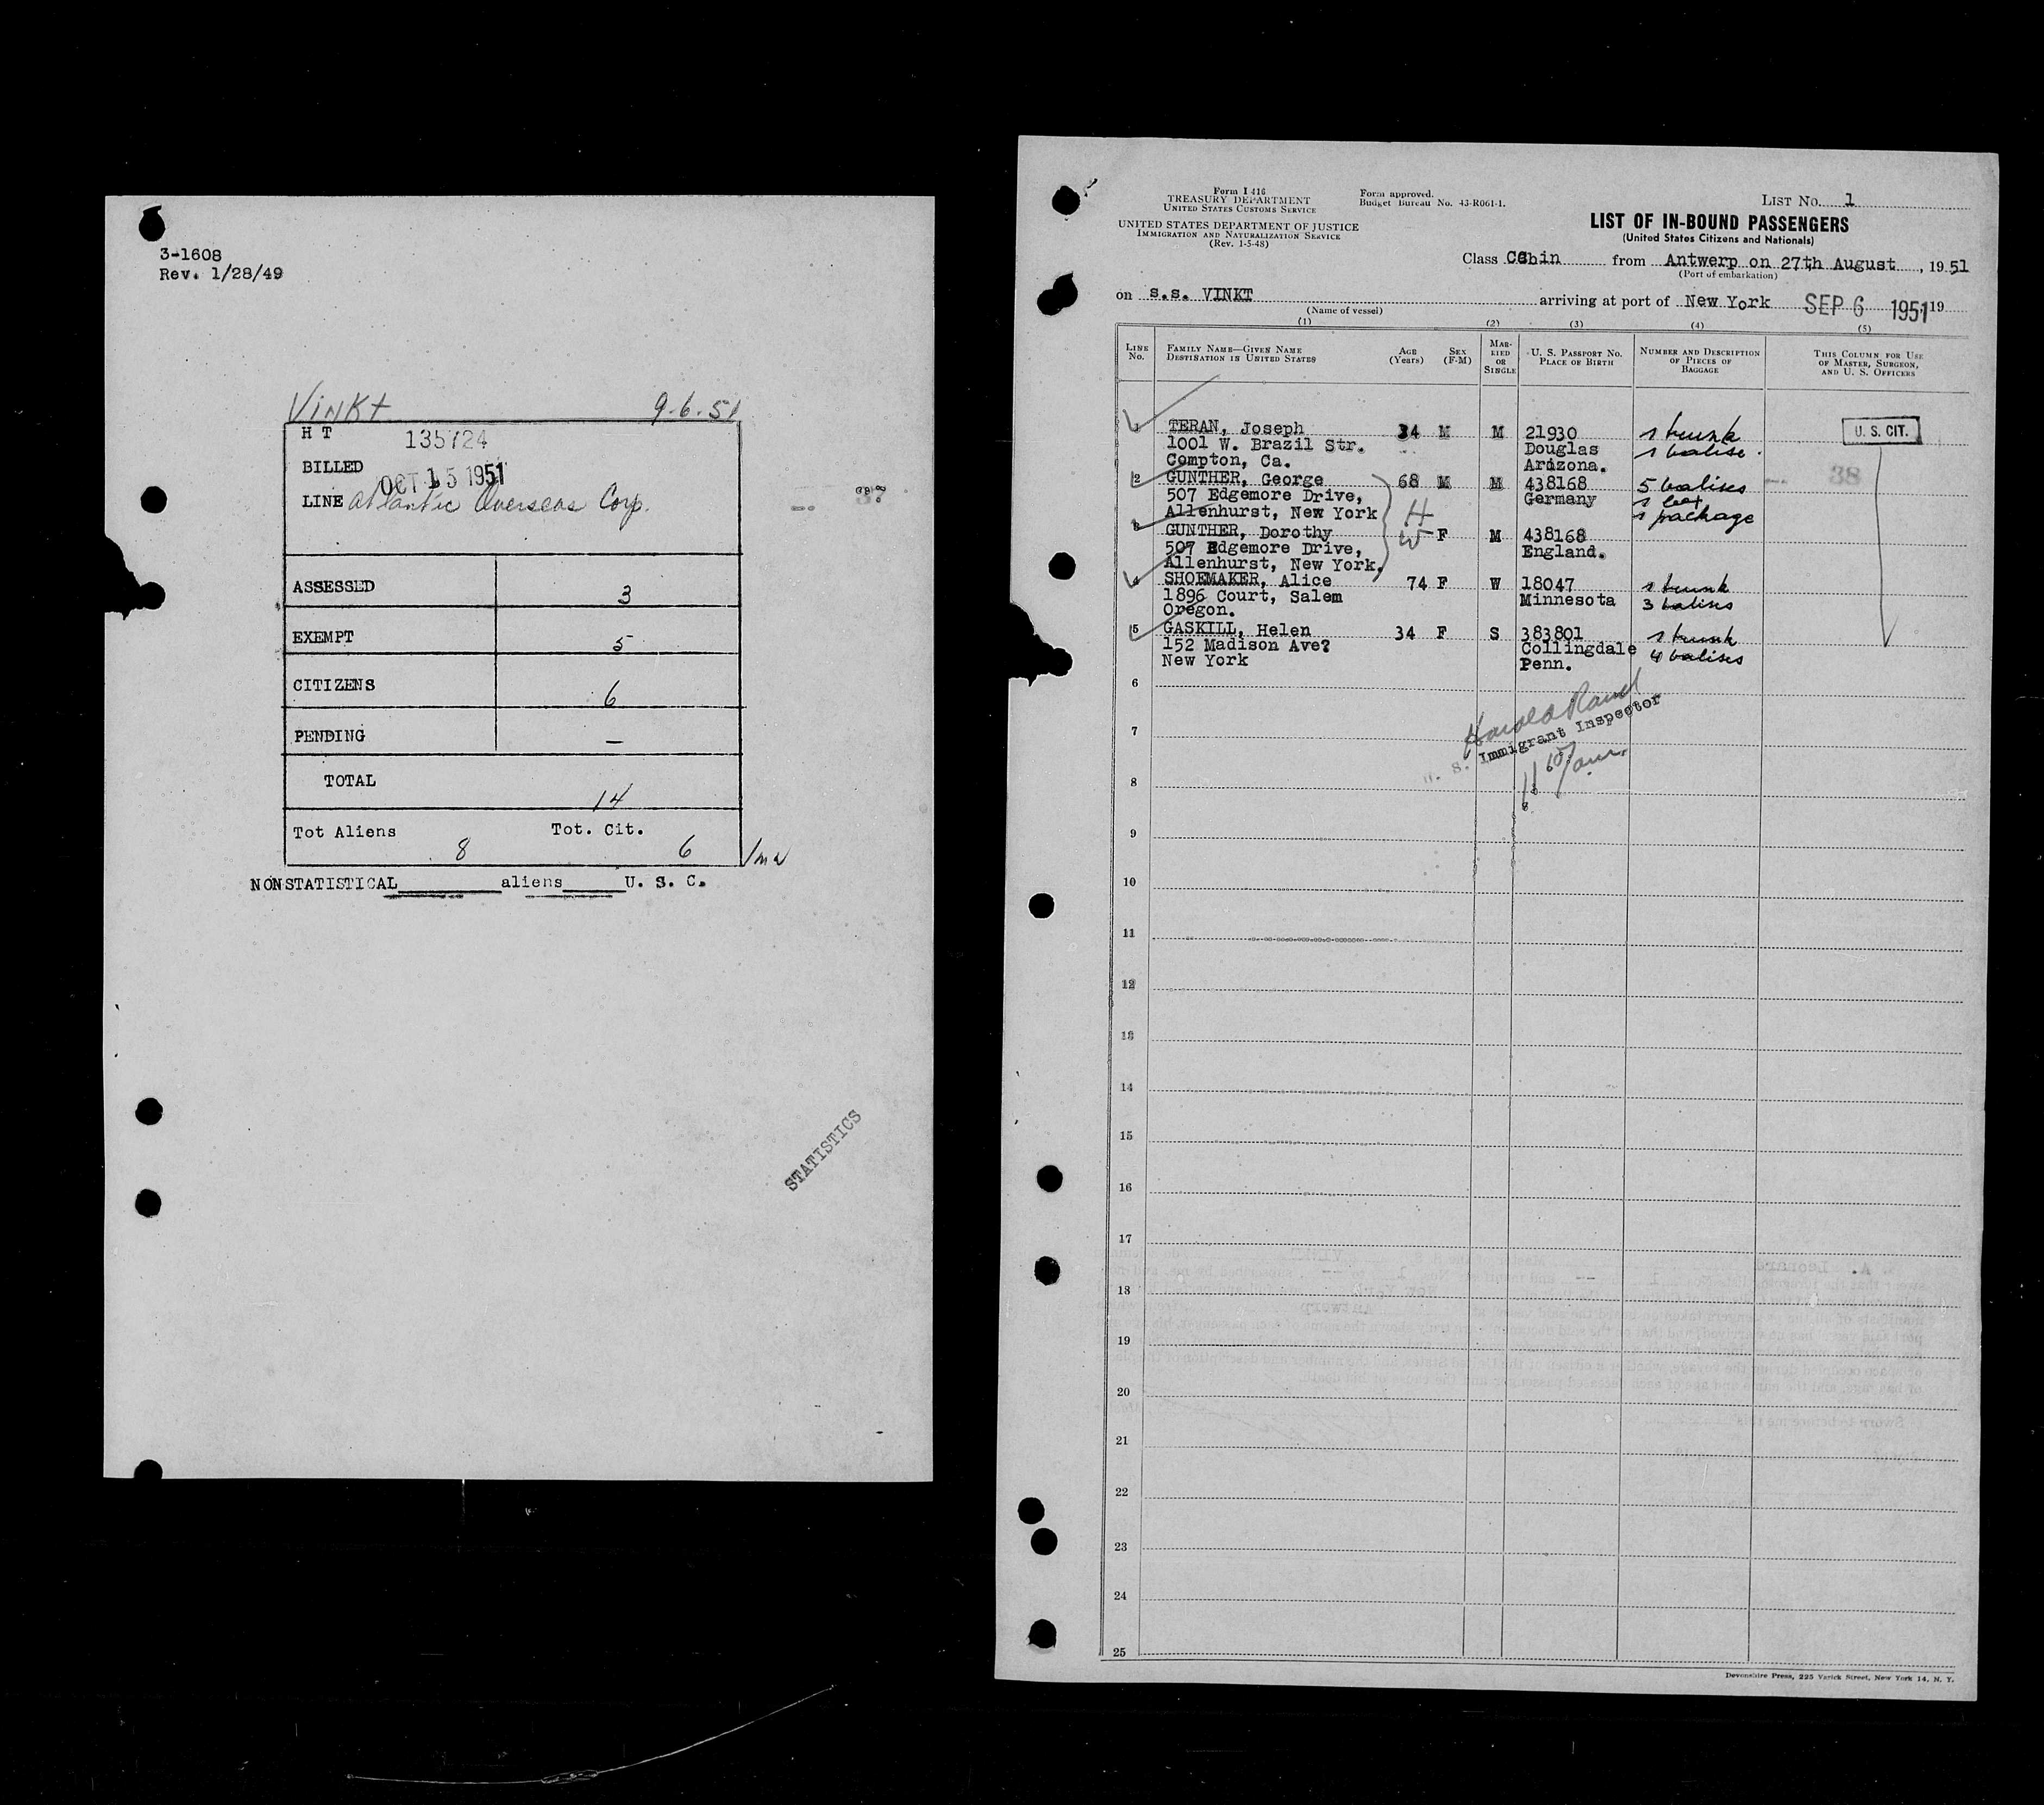 3-1608
Rev. 1/28/49
Vinkt 9-6-51
H T 135724
BILLED OCT 15 1951
LINE Atlantic Overseas Corp.
37
ASSESSED 3
EXEMPT 5
CITIZENS 6
PENDING —
TOTAL 14
Tot Aliens 8 Tot. Cit. 6
NONSTATISTICAL aliens U. S. C.
STATISTICS
Form I 416
TREASURY DEPARTMENT
UNITED STATES CUSTOMS SERVICE
UNITED STATES DEPARTMENT OF JUSTICE
IMMIGRATION AND NATURALIZATION SERVICE
(Rev. 1-5-48)
Form approved.
Budget Bureau No. 43-R061-1.
LIST No. 1
LIST OF IN-BOUND PASSENGERS
(United States Citizens and Nationals)
Class Cabin from Antwerp on 27th August, 1951
(Port of embarkation)
on s.s. VINKT arriving at port of New York SEP 6 1951 19
(Name of vessel)
(1) (2) (3) (4) (5)
LINE No. FAMILY NAME—GIVEN NAME DESTINATION IN UNITED STATES AGE (Years) SEX (F-M) MARRIED OR SINGLE U. S. PASSPORT NO. PLACE OF BIRTH NUMBER AND DESCRIPTION OF PIECES OF BAGGAGE THIS COLUMN FOR USE OF MASTER, SURGEON, AND U. S. OFFICERS
1 TERAN, Joseph 34 M M 21930 1 trunk U. S. CIT.
1001 W. Brazil Str. Douglas 1 valise
Compton, Ca. Arizona.
2 GUNTHER, George 68 M M 438168 5 valises 38
507 Edgemore Drive, Germany 1 box
Allenhurst, New York H 1 package
3 GUNTHER, Dorothy W F M 438168
507 Edgemore Drive, England.
Allenhurst, New York.
4 SHOEMAKER, Alice 74 F W 18047 1 trunk
1896 Court, Salem Minnesota 3 valises
Oregon.
5 GASKILL, Helen 34 F S 383801 1 trunk
152 Madison Ave? Collingdale 4 valises
New York Penn.
6
U. S. Immigrant Inspector
7
8
9
10
11
12
13
14
15
16
17
18
19
20
21
22
23
24
25
Devonshire Press, 225 Varick Street, New York 14, N. Y.